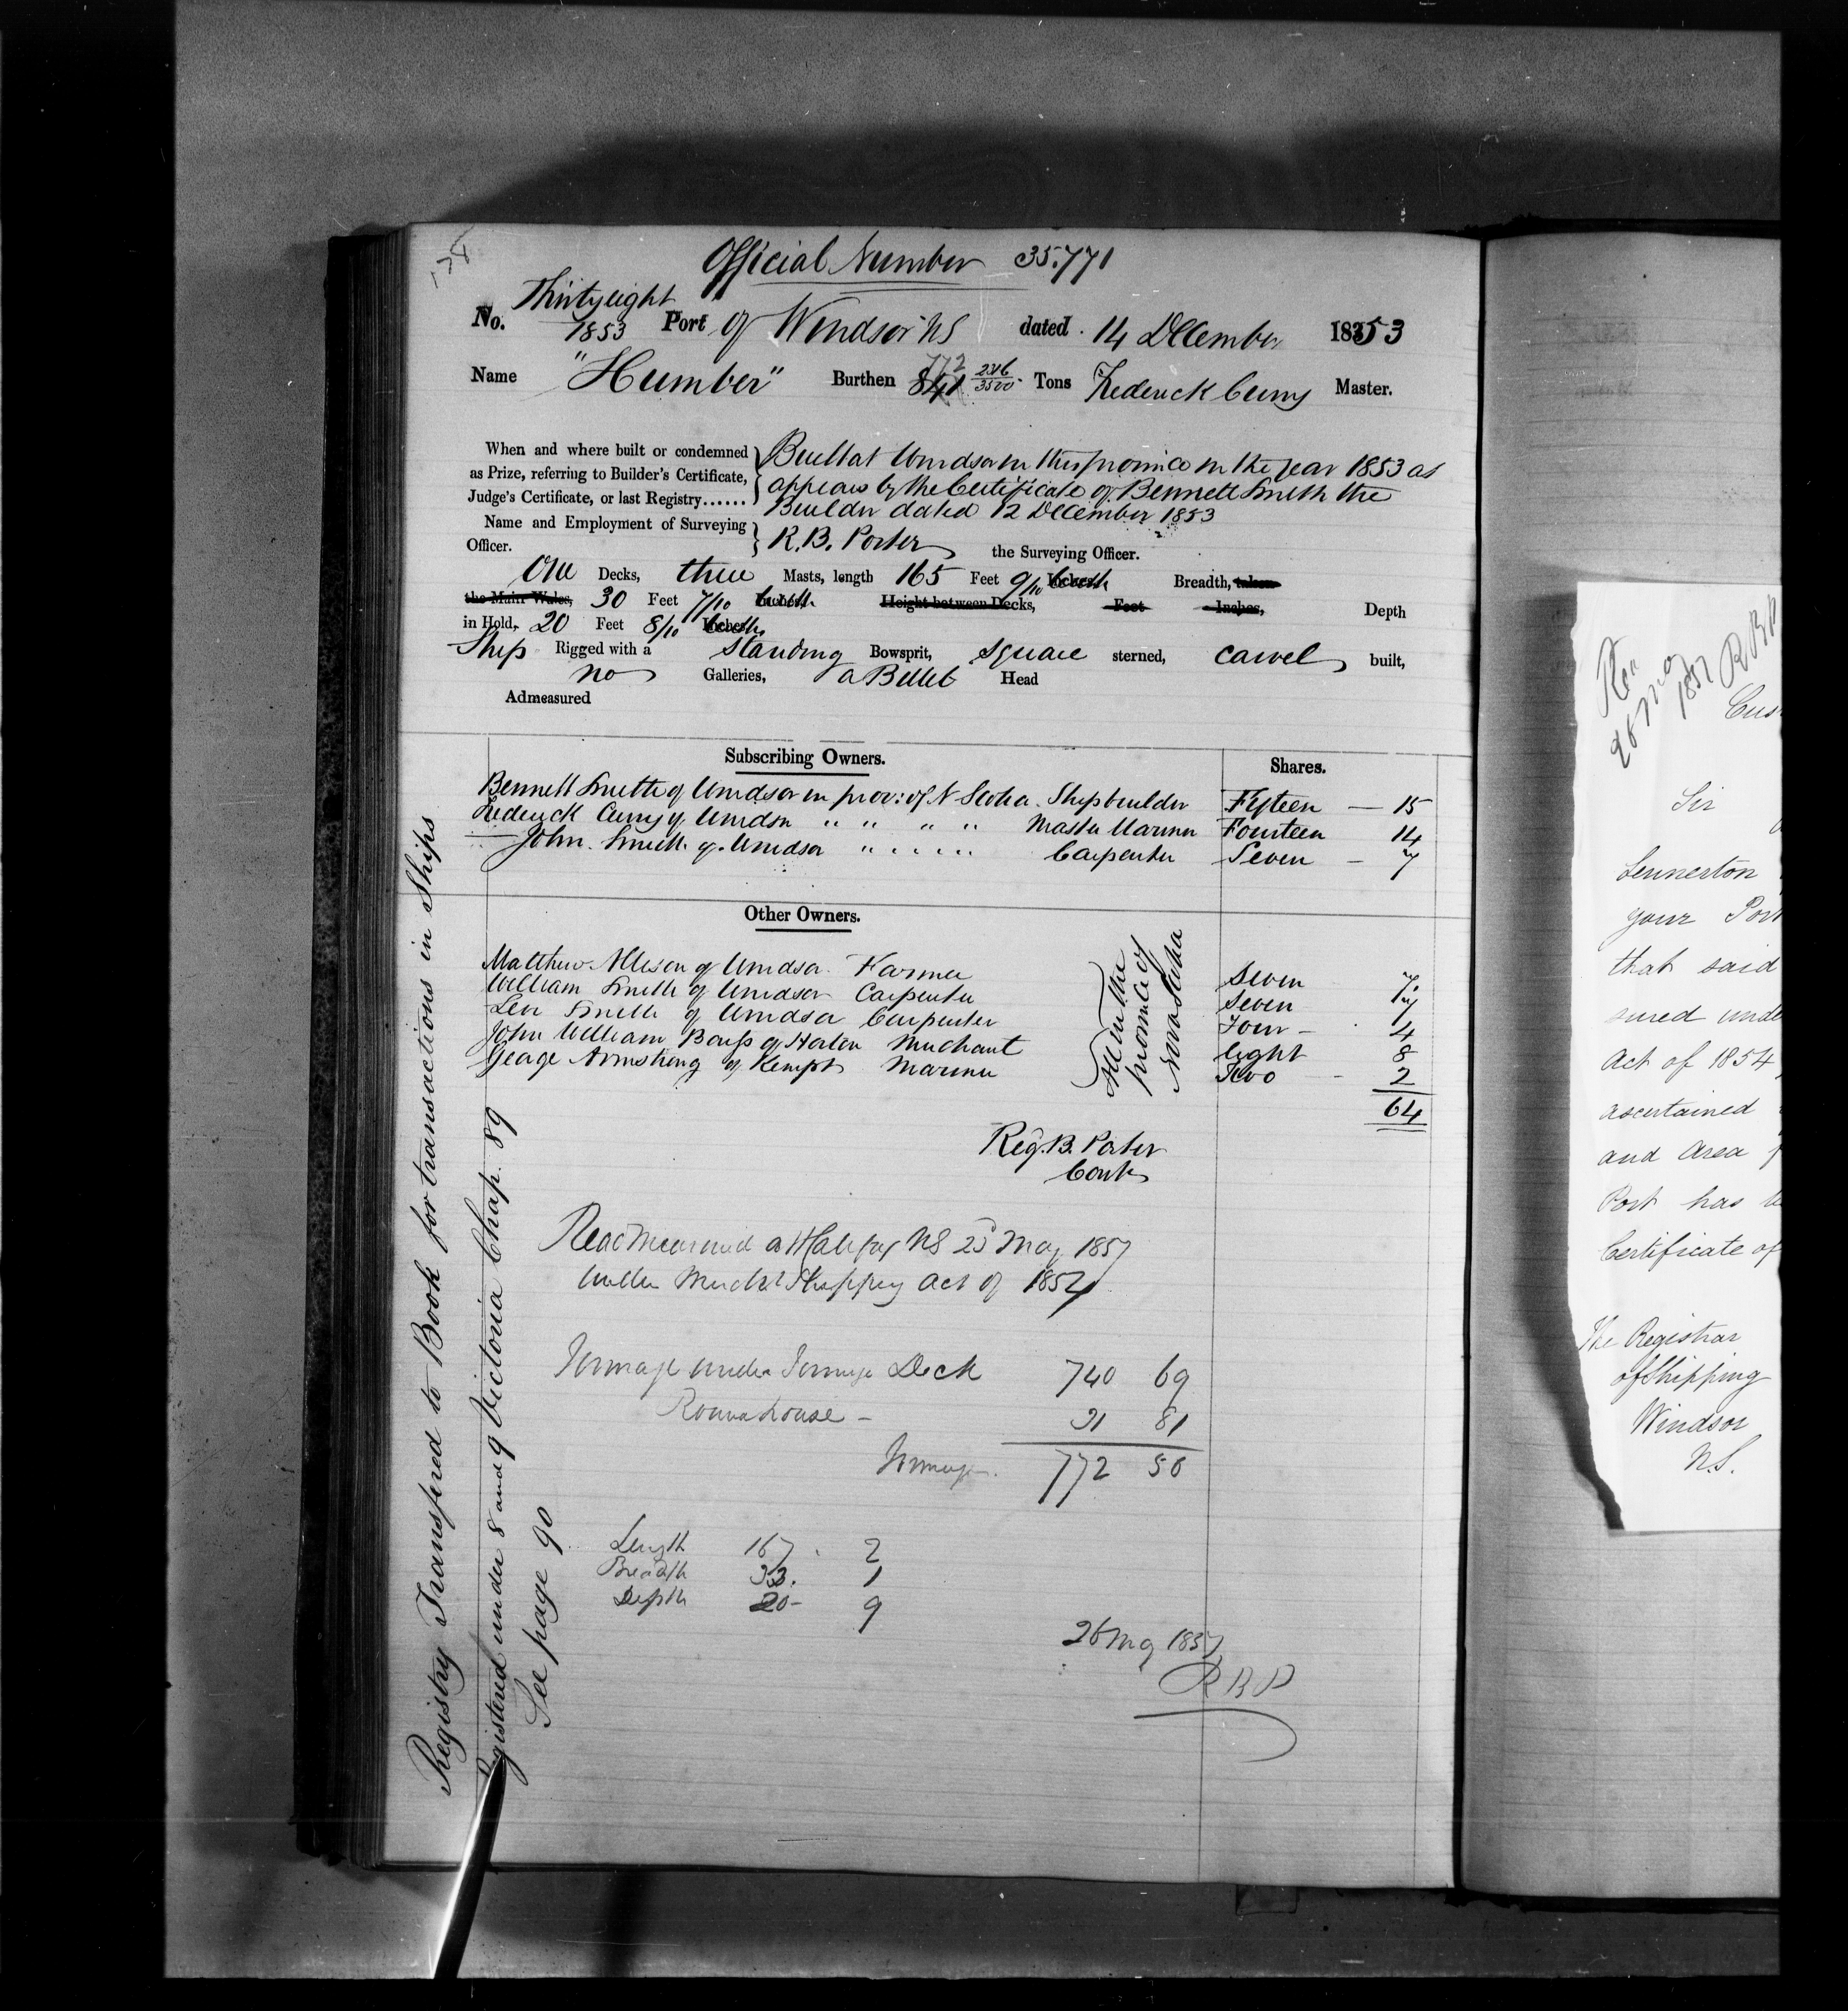 178
Official Number 35.771
No. Thirtyeight 1853 Port of Windsor NS dated 14 December 1853
Name "Humber" Burthen 841 772 246/3500 Tons Frederick Curry Master.
When and where built or condemned as Prize, referring to Builder's Certificate, Judge's Certificate, or last Registry......
Built at Windsor in this province in the year 1853 as
appears by the Certificate of Bennett Smith the
Builder dated 12 December 1853
Name and Employment of Surveying Officer. R.B. Porter the Surveying Officer.
One Decks, three Masts, length 165 Feet 9/10 Inches Breadth, taken
the Main Wales, 30 Feet 7/10 Inches, Height between Decks, Feet Inches, Depth
in Hold, 20 Feet 8/10 Inches.
Ship Rigged with a standing Bowsprit, square sterned, carvel built,
no Galleries, a Billet Head
Admeasured
Subscribing Owners. Shares.
Bennett Smith of Windsor in prov: of N Scotia Shipbuilder Fifteen — 15
Frederick Curry of Windsor " " " " Master Mariner Fourteen 14
John Smith of Windsor " " " " Carpenter Seven — 7
Other Owners.
Matthew Allison of Windsor Farmer Seven 7
William Smith of Windsor Carpenter Seven 7
Levi Smith of Windsor Carpenter Four - 4
John William Barss of Horton Merchant Eight 8
George Armstrong of Kempt Mariner Two - 2
All in the
province of
Nova Scotia
64
Reg. B. Porter
Contr
Readmeasured at Halifax NS 25 May 1857
under Mercht Shipping Act of 1854
Tonnage under Tonnage Deck 740 69
Roundhouse - 31 81
Tonnage. 772 50
Length 167. 2
Breadth 33. 1
Depth 20- 9
26 May 1857
RBP
Registry Transfered to Book for transactions in Ships
Registered under 8 and 9 Victoria Chap. 89
See page 90
Rec
26 May
1857 RBP
Cus
Sir
your Port
that said
sured unde
Act of 1854
ascertained
and Area
Port has
Certificate of
The Registrar
of Shipping
Windsor
N.S.